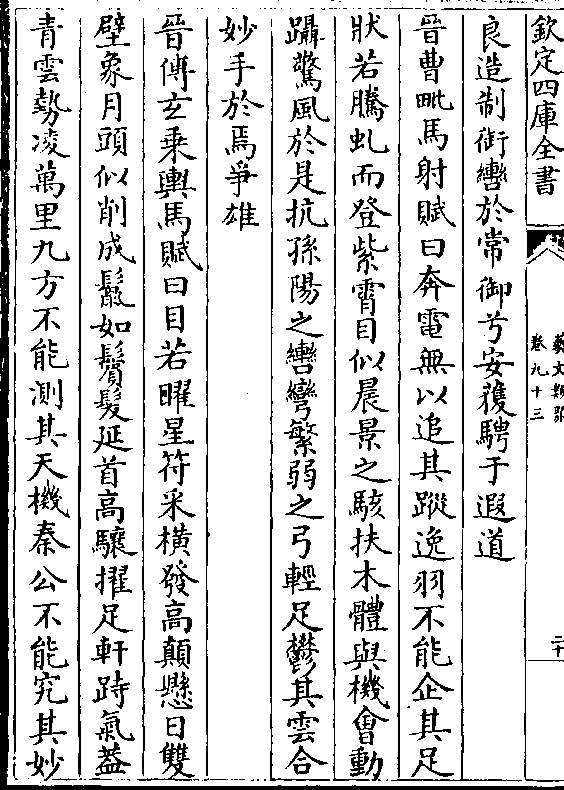 欽定四庫全書
藝文類聚
卷九十三
二十
良造制銜轡於常御兮安獲騁于遐道
晉曹毗馬射賦曰奔電無以追其蹤逸羽不能企其足
狀若騰虬而登紫霄目似晨景之駭扶木體與機會動
躡驚風於是抗孫陽之轡彎繁弱之弓輕足鬱其雲合
妙手於焉爭雄
晉傅玄乗輿馬賦曰目若曜星符采橫發高顛懸日雙
壁象月頭似削成鬛如鬒髮延首高驤擢足軒跱氣葢
青雲勢凌萬里九方不能測其天機秦公不能究其妙